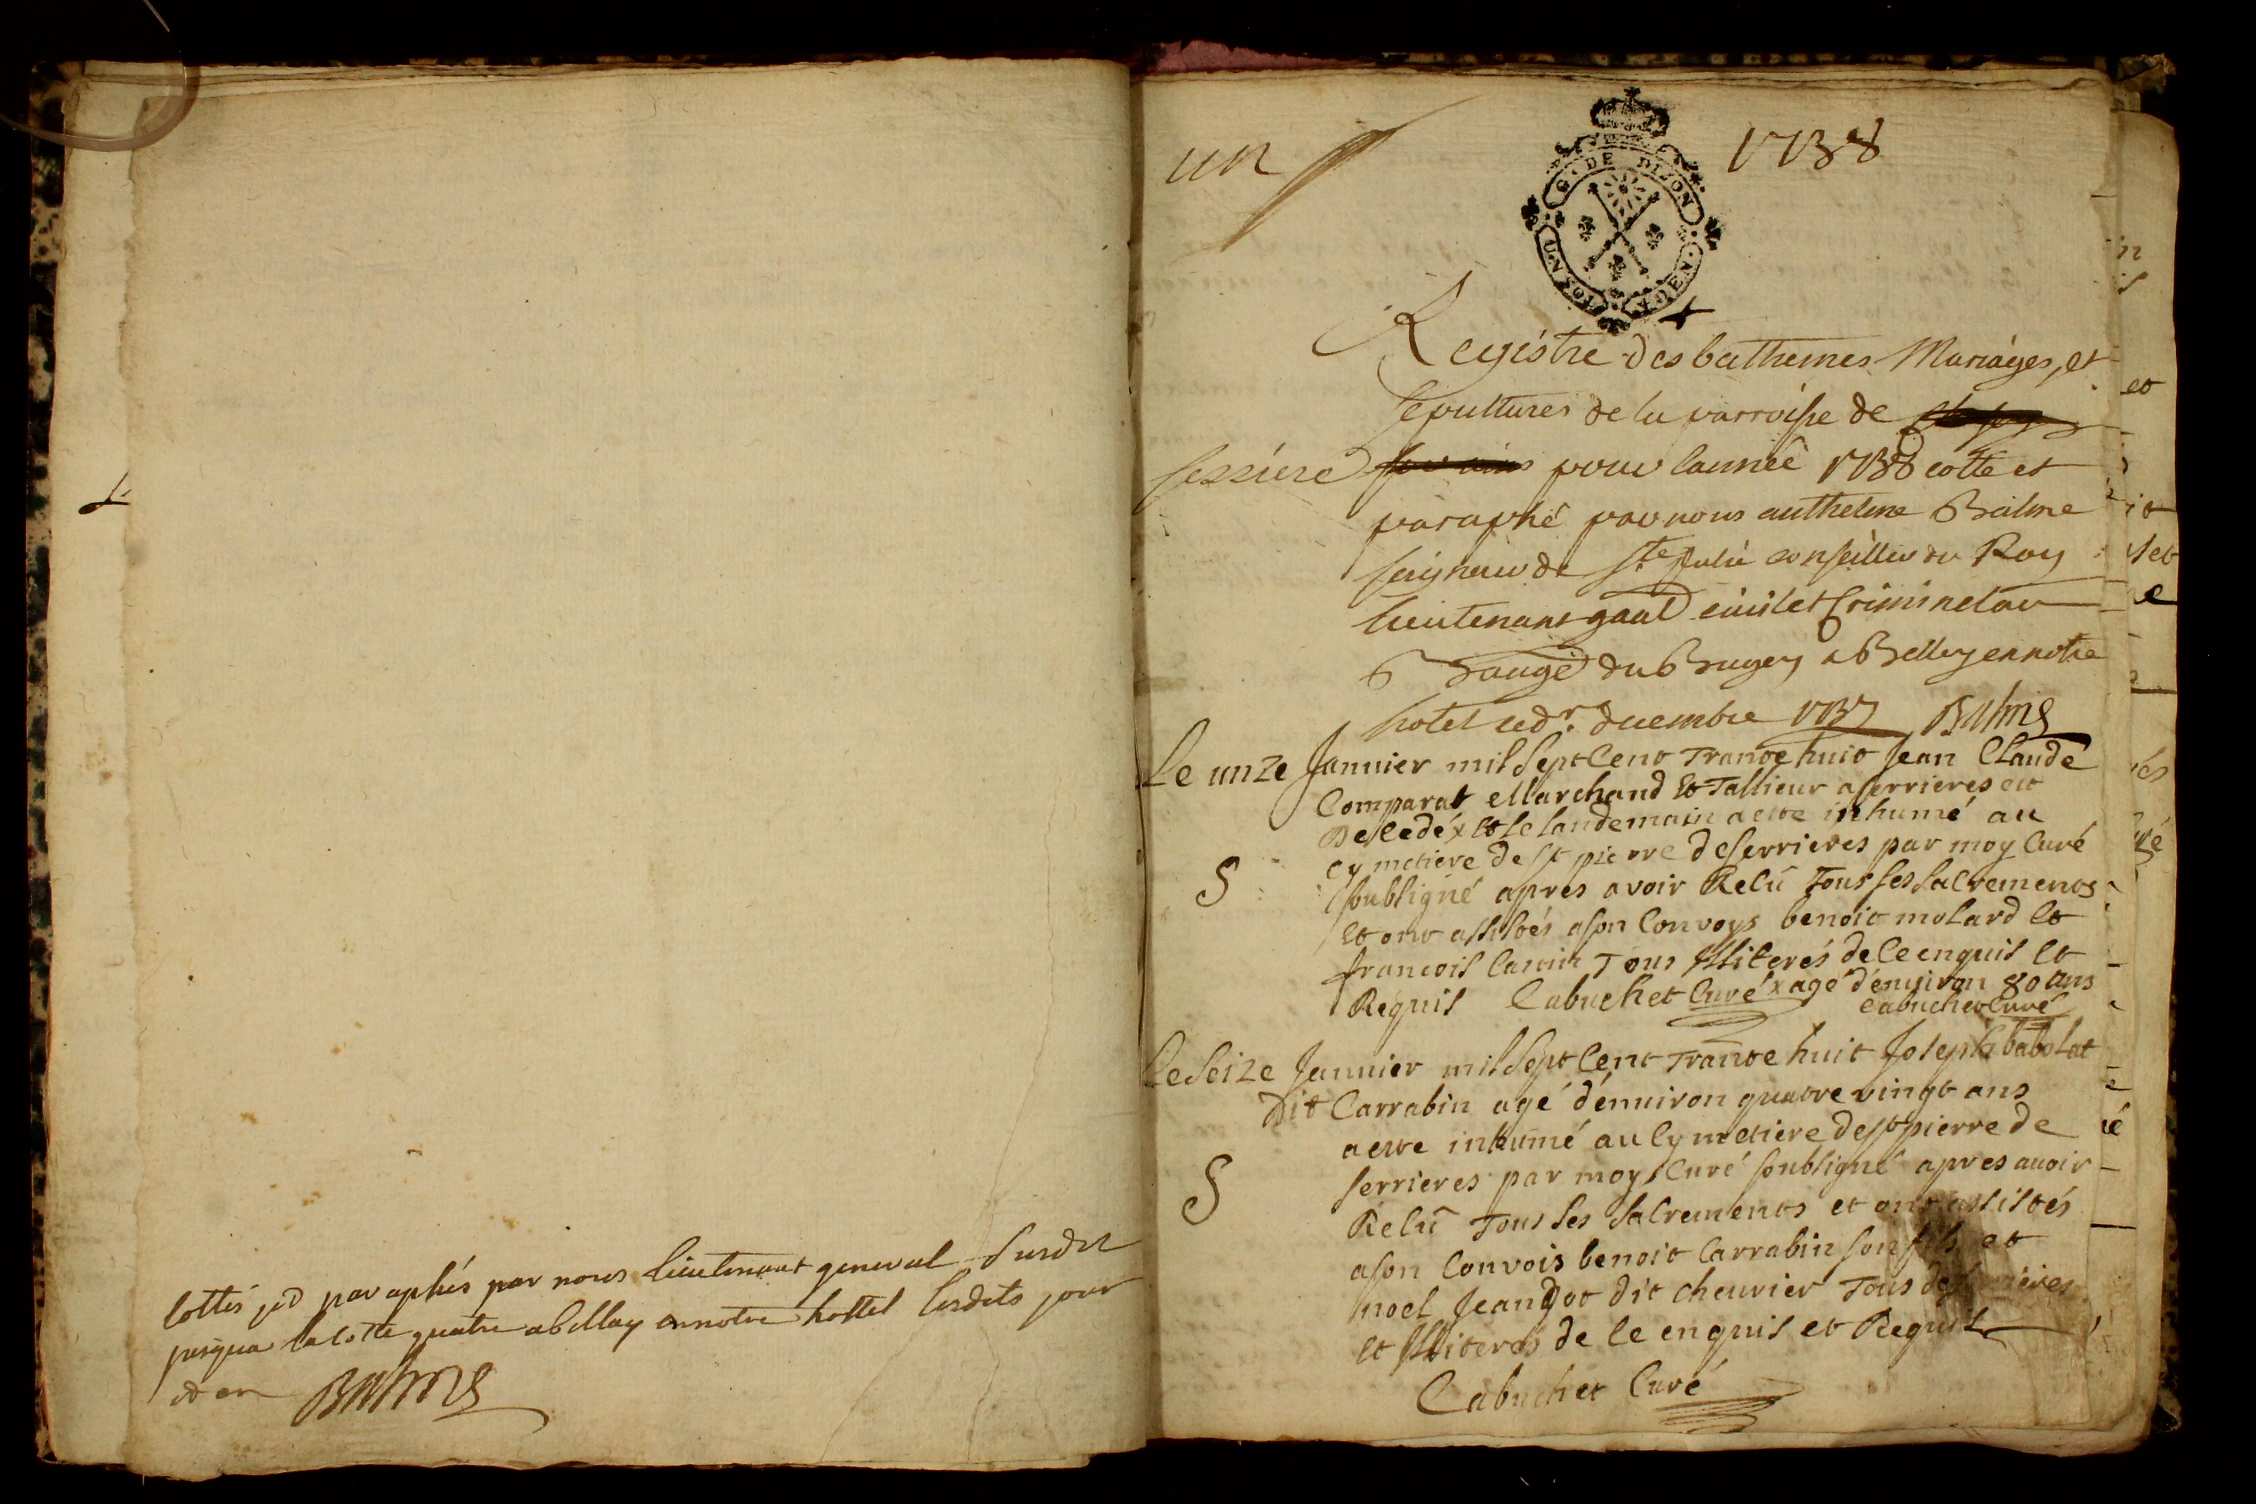 Cottés et paraphés par nous lieutenant general susdit
jusqua la cotte quatre abellay en notre hottel lesdits jour
et an Balme
un
1738
G. DE DIJON
Registre des bathemes Mariages, et
sepultures de la parroisse de
serriere pour lannée 1738 cotté et
paraphé par nous anthelme Balme
seigneur de Ste Julie conseiller du Roy
lieutenant gnal civil et Criminel au
Bauge du Bugey a Belley en notre
hotel ce dr. decembre 1737 Balme
Le unze Janvier mil Sept Cent Trante huit Jean Claude
Comparat Marchand Et Tallieur a serrieres est
Decedé x Et le landemain a este inhumé au
cymetiere de st pierre de serrieres par moy Curé
soubsigné apres avoir Recu Tous ses sacrements
S
Et ont assistés a son Convoys benoit molard Et
francois Tous Illiterés de ce enquis Et
Requis Cabuchet Curé x agé d'environ 80 ans
Cabuchet Curé
Le Seize Janvier mil Sept Cent Trante huit Joseph babolat
dit Carrabin agé d'environ quatre vingt ans
a este inhumé au Cymetiere de st pierre de
serrieres par moy Curé soubsigné apres avoir
S
Recu Tous ses sacrements et ont assistés
a son Convois benoit Carrabin son fils et
noel Jeandot dit chevrier Tous de serrieres
Et Illiterés de ce enquis et Requis
Cabuchet Curé